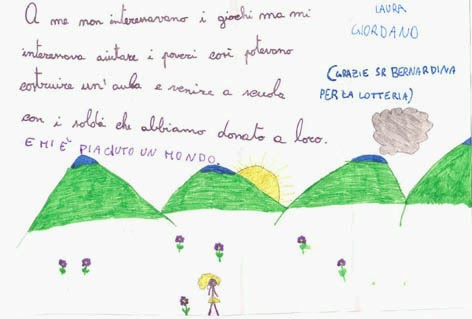 A me non interessavano i giochi ma mi
interessava aiutare i poveri così potevano
costruire un'aula e venire a scuola
con i soldi che abbiamo donato a loro.
E MI È PIACIUTO UN MONDO.
LAURA
GIORDANO
(GRAZIE SR BERNARDINA
PER LA LOTTERIA)